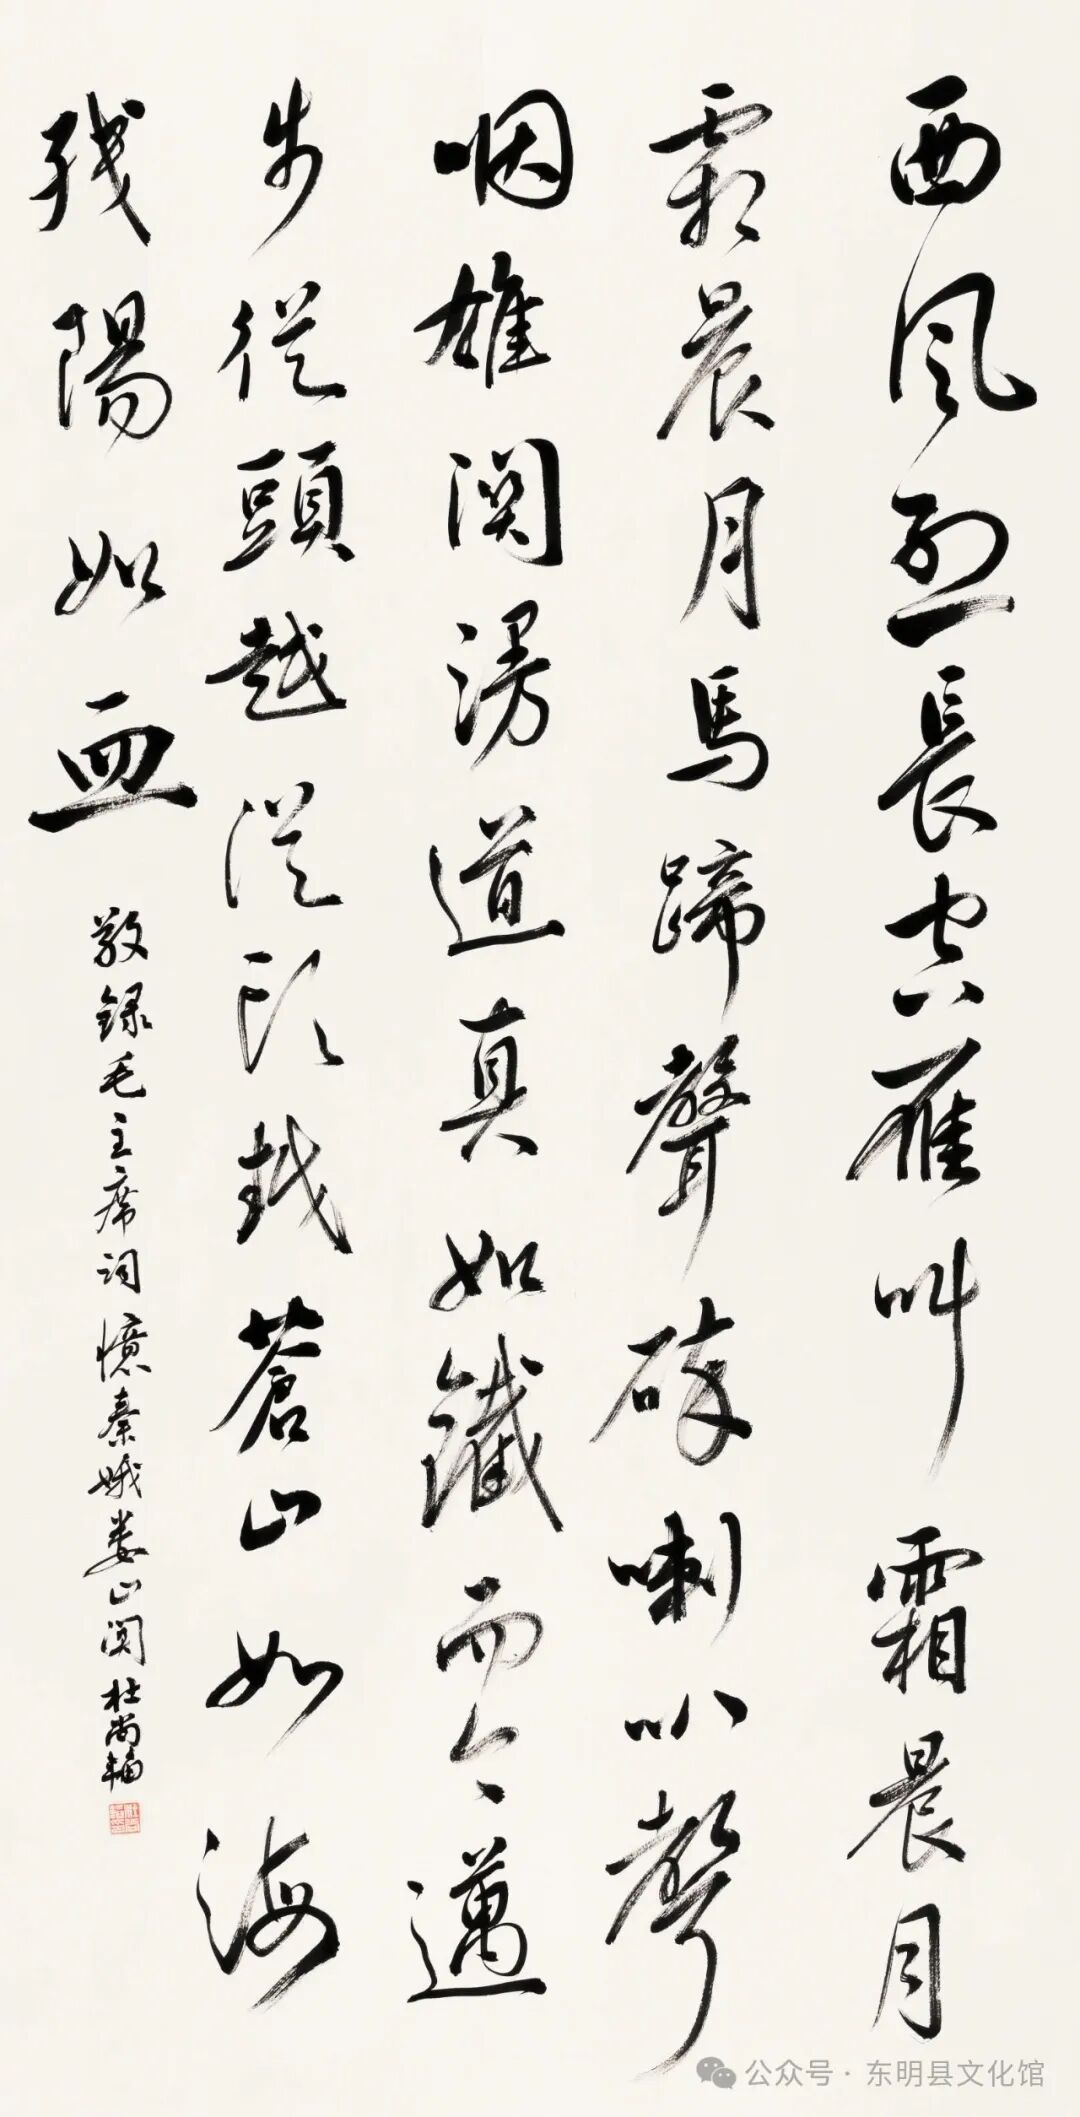 西風烈長空雁叫霜晨月
霜晨月馬蹄聲碎喇叭聲
咽雄関漫道真如鐵而今邁
步從頭越從頭越蒼山如海
残陽如血
敬録毛主席词憶秦娥娄山関杜尚輻
公众号·东明县文化馆